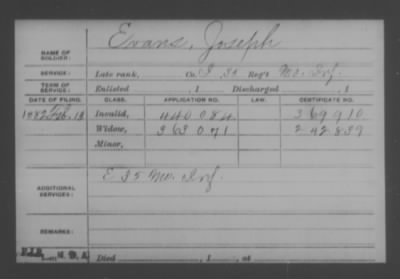 Evans, Joseph
NAME OF SOLDIER:
SERVICE: Late rank, Co. I 35 Reg't Mo. Inf.
TERM OF SERVICE: Enlisted , 1 Discharged , 1
DATE OF FILING. CLASS. APPLICATION NO. LAW. CERTIFICATE NO.
1882 Feb. 18 Invalid, 440084 369910
Widow, 363071 242839
Minor,
E 35 Mo. Inf.
ADDITIONAL SERVICES:
REMARKS:
Died , 1 , at